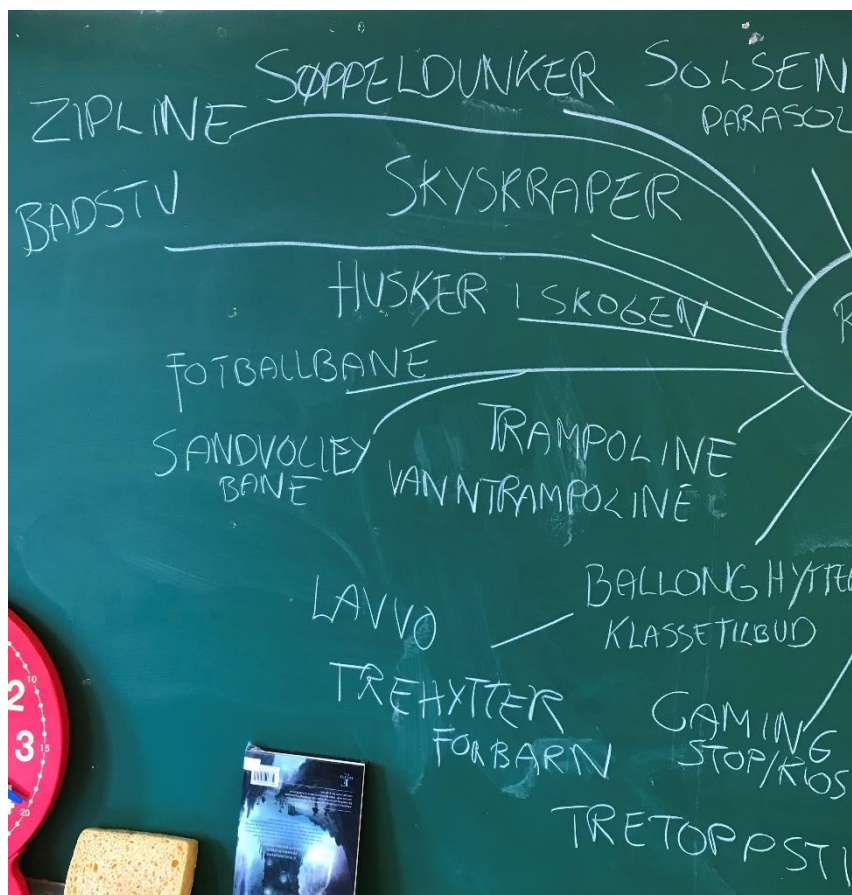 SØPPELDUNKER
SOLSEN
PARASOL
ZIPLINE
BADSTU
SKYSKRAPER
HUSKER I SKOGEN
FOTBALLBANE
SANDVOLLEY
BANE
TRAMPOLINE
VANNTRAMPOLINE
BALLONGHYTTE
KLASSETILBUD
LAVVO
TREHYTTER
FOR BARN
GAMING
STOP/KIOS
TRETOPPSTI
2
10
3
15
20